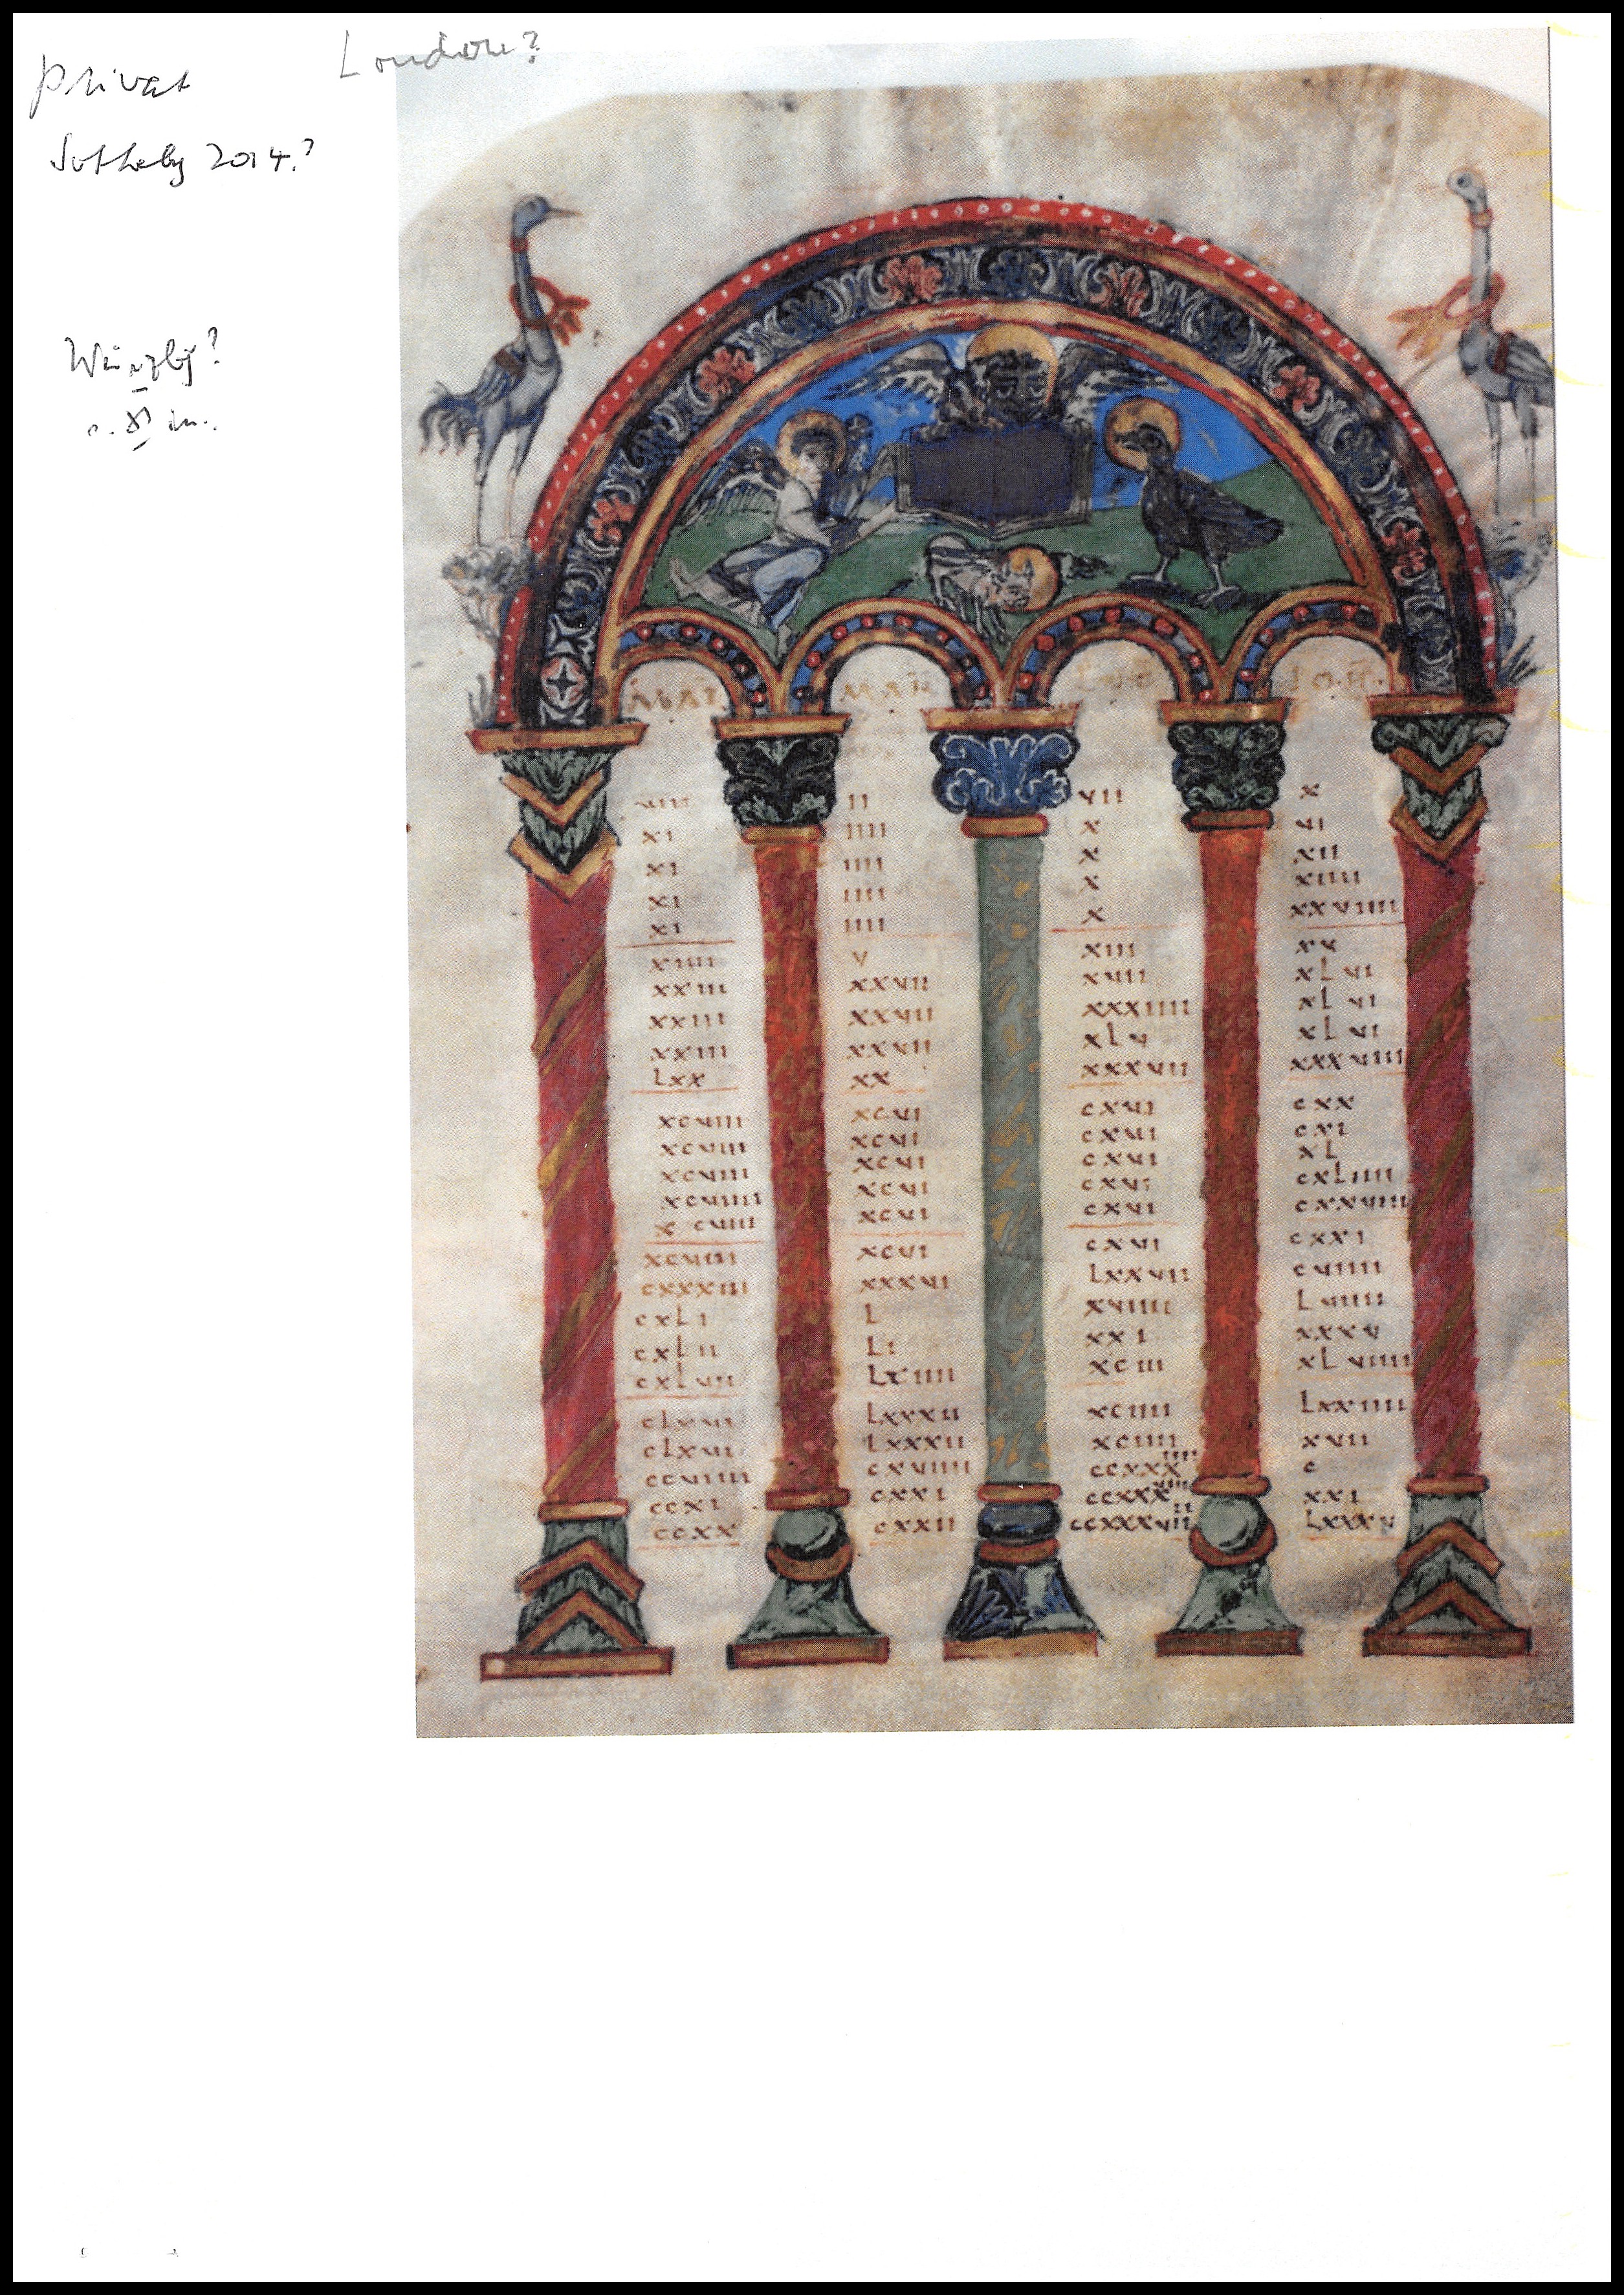 London?
Privat
Sotheby 2014?
Würzbg?
s. XI in.
MAT MAR LUC IOH
viii ii vii x
xi iiii x vi
xi iiii x xii
xi iiii x xiiii
xi iiii x xxviiii
xiiii v xiii xv
xxiii xxvii xviii xLvi
xxiii xxvii xxxiiii xLvi
xxiii xxvii xLv xLvi
Lxx xx xxxvii xxxviiii
xcviii xcvi cxvi cxx
xcviii xcvi cxvi cxi
xcviii xcvi cxvi xL
xcviiii xcvi cxvi cxLiiii
xcviii xcvi cxvi cxxviiii
xcviiii xcvi cxvi cxxi
cxxxiii xxxvi Lxxvii cviiii
cxLi L xviiii Lviiii
cxLii Li xxi xxxv
cxLvii Lxiiii xciii xLviiii
cLxvi Lxxxii xciiii Lxxiiii
cLxvi Lxxxii xciiii xvii
ccviiii cxviiii ccxxxiiii c
ccxi cxxi xxi
ccxx cxxii ccxxxvii Lxxxv